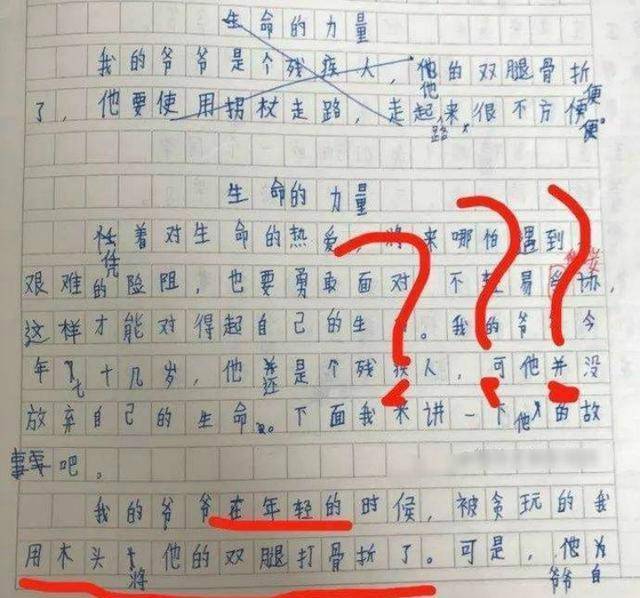 生命的力量
我的爷爷是个残疾人，他的双腿骨折
他
了，他要使用拐杖走路，走起来很不方便
路
便。
生命的力量
着对生命的热爱，将来哪怕遇到
凭
艰难的险阻，也要勇敢面对 不轻易 协，
妥
这样才能对得起自己的生 。我的爷 今
年 十几岁，他 是个残疾人，可他并没
七
还
放弃自己的生命。下面我来讲一下他的故
事吧。
我的爷爷在年轻的时候，被贪玩的我
用木头 他的双腿打骨折了。可是，他为
将
爷爷 自